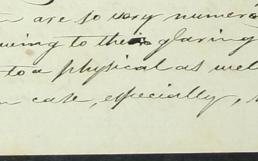 are so very numero
owing to their glaring
to a physical as wel
case, especially,